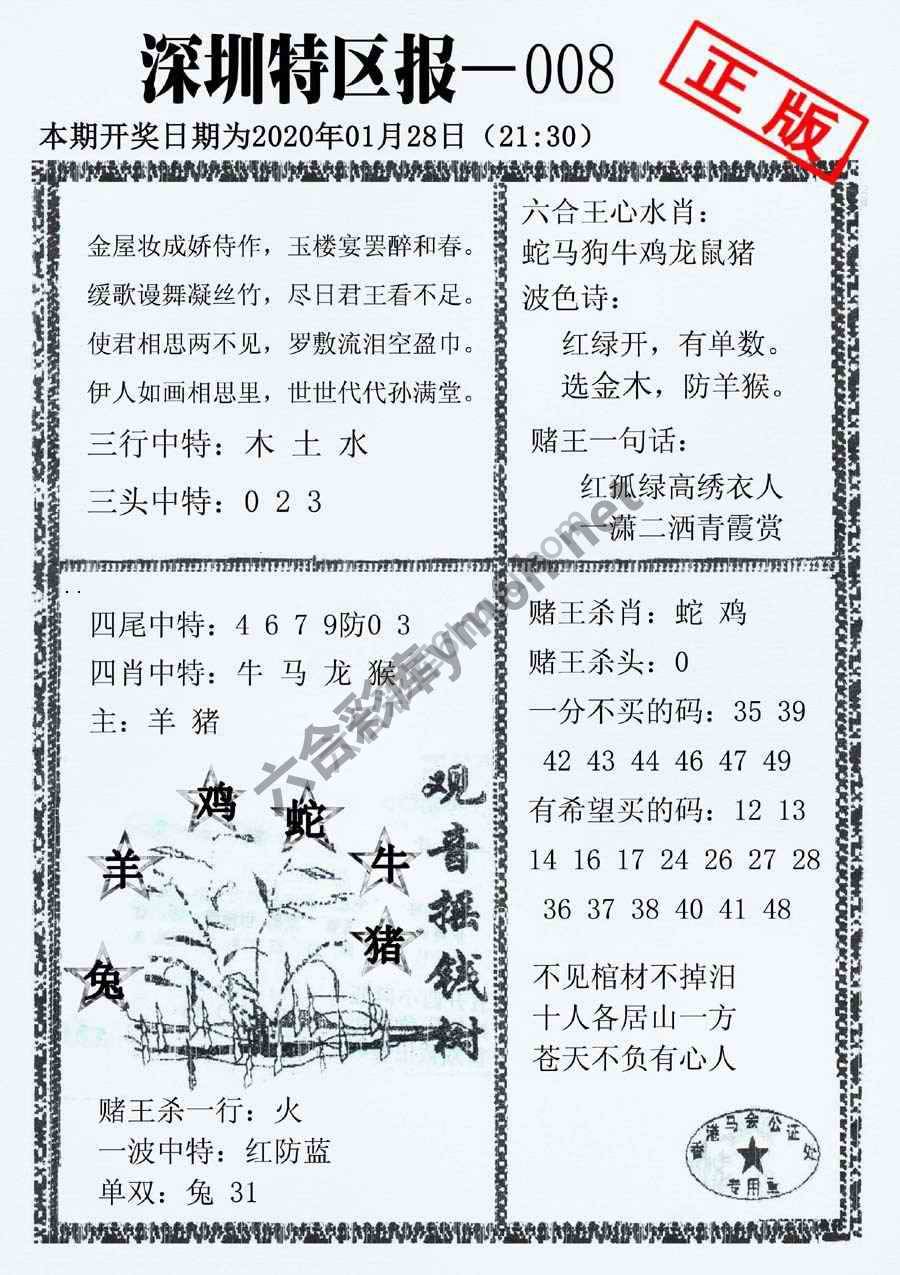 深圳特区报—008
正版
本期开奖日期为2020年01月28日（21:30）
金屋妆成娇侍作，玉楼宴罢醉和春。
缓歌谩舞凝丝竹，尽日君王看不足。
使君相思两不见，罗敷流泪空盈巾。
伊人如画相思里，世世代代孙满堂。
三行中特：木 土 水
三头中特：0 2 3
六合王心水肖：
蛇马狗牛鸡龙鼠猪
波色诗：
红绿开，有单数。
选金木，防羊猴。
赌王一句话：
红孤绿高绣衣人
一潇二洒青霞赏
四尾中特：4 6 7 9防0 3
四肖中特：牛 马 龙 猴
主：羊 猪
鸡
蛇
羊
牛
猪
兔
观音摇钱树
赌王杀一行：火
一波中特：红防蓝
单双：兔 31
赌王杀肖：蛇 鸡
赌王杀头：0
一分不买的码：35 39
42 43 44 46 47 49
有希望买的码：12 13
14 16 17 24 26 27 28
36 37 38 40 41 48
不见棺材不掉泪
十人各居山一方
苍天不负有心人
香港马会公证处
专用章
六合彩库ymoho.net